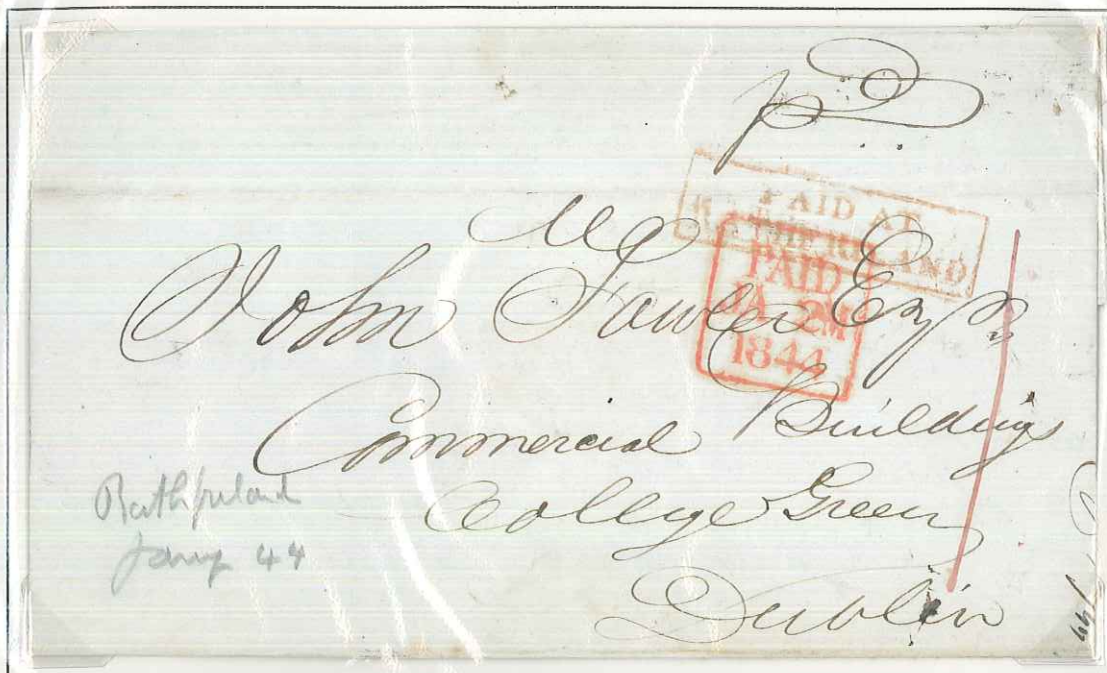 pd
PAID AT
PAID
JA 2M
1844
John Fowler Esqr
Commercial Buildings
College Green
Dublin
Rathfriland
Jany 44